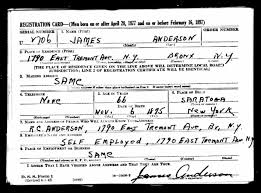 REGISTRATION CARD—(Men born on or after April 28, 1877 and on or before February 16, 1897)
SERIAL NUMBER 1. NAME (Print) ORDER NUMBER
U 1706 JAMES ANDERSON
(First) (Middle) (Last)
2. PLACE OF RESIDENCE (Print)
1790 EAST TREMONT AVE. N.Y. BRONX N.Y.
(Number and street) (Town, township, village, or city) (County) (State)
[THE PLACE OF RESIDENCE GIVEN ON THE LINE ABOVE WILL DETERMINE LOCAL BOARD
JURISDICTION; LINE 2 OF REGISTRATION CERTIFICATE WILL BE IDENTICAL]
3. MAILING ADDRESS
SAME
4. TELEPHONE 5. AGE IN YEARS 6. PLACE OF BIRTH
NONE 66 SARATOGA
DATE OF BIRTH
NOV. 1 1875 NEW YORK
R.C. ANDERSON, 1790 EAST TREMONT AVE, BX, N.Y.
8. EMPLOYER'S NAME AND ADDRESS
SELF EMPLOYED, 1790 EAST TREMONT AVE
9. PLACE OF EMPLOYMENT OR BUSINESS
SAME
I AFFIRM THAT I HAVE VERIFIED ABOVE ANSWERS AND THAT THEY ARE TRUE.
D. S. S. Form 1
James Anderson